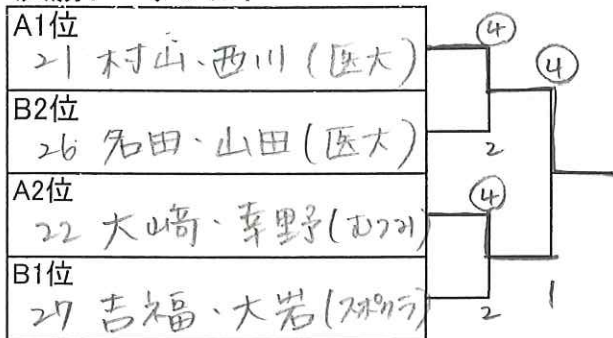 A1位
④
21 村山・西川 (医大)
④
B2位
26 名田・山田 (医大)
2
A2位
④
22 大﨑・幸野 (むつみ)
B1位
27 吉福・大岩 (スポクラ)
2
1